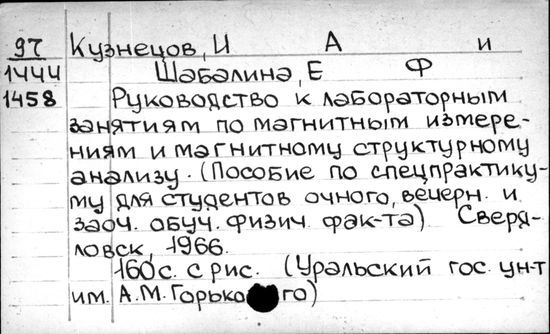 97 Кузнецов, И А и
1444 Шабалина, Е Ф
1458 Руководство к лабораторным
занятиям по магнитным измере-
ниям и магнитному структурному
анализу. (Пособие по спецпрактику-
му для студентов очного, вечерн. и
заоч. обуч. физич. фак-та) Сверд-
ловск, 1966.
160с. с рис. (Уральский гос. ун-т
им. А.М. Горького)